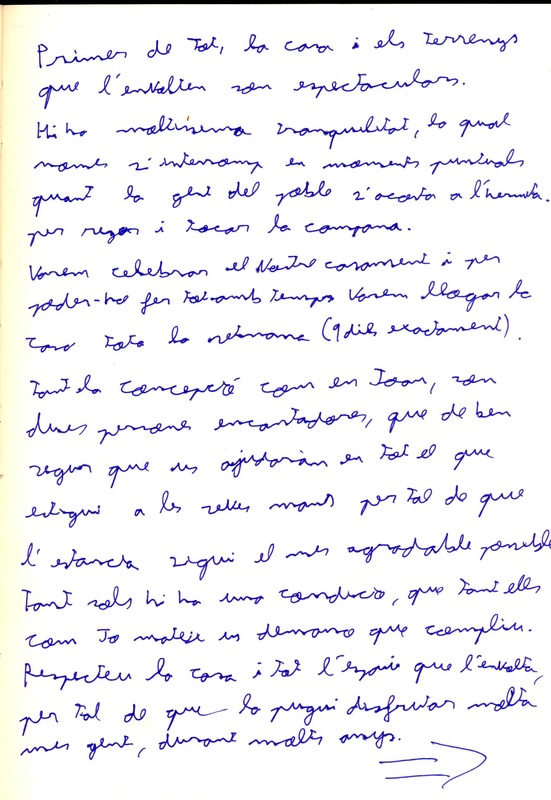 Primer de tot, la casa i els terrenys
que l'envolten son espectaculars.
Hi ha moltissima tranquilitat, la qual
nomes s'interromp en moments puntuals
quant la gent del poble s'acosta a l'hermita.
per resar i tocar la campana.
Varem celebrar el Nostre casament i per
poder-ho fer tot amb temps Varem llogar la
casa tota la setmana (9 dies exactament).
Tant la Concepció com en Joan, son
dues persones encantadores, que de ben
segur que us ajudaran en tot el que
estigui a les seves mans per tal de que
l'estancia sigui el mes agradable possible
Tant sols hi ha una condicio, que tant ells
com Jo mateix us demano que compliu.
Respecteu la casa i tot l'espai que l'envolta,
per tal de que la pugui disfrutar molta
mes gent, durant molts anys.